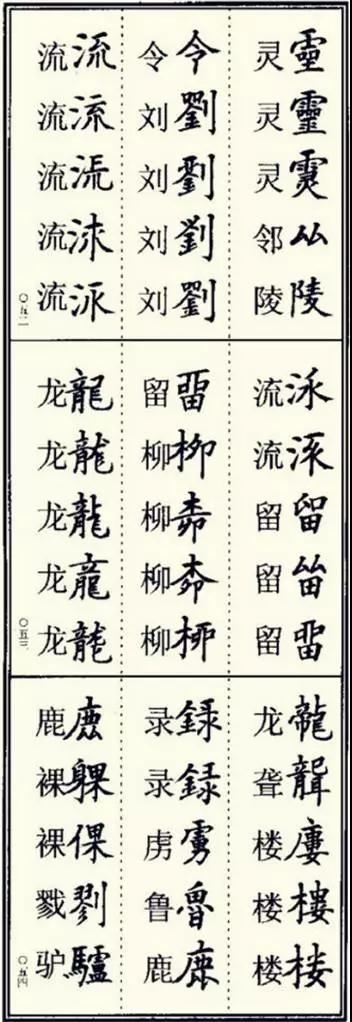 灵靈
灵靈
灵
邻厸
陵陵
令令
刘劉
刘劉
刘劉
刘劉
流流
流流
流
流
流
〇五二
流
流
留留
留
留畱
留畱
柳柳
柳
柳
柳桺
龙龍
龙龍
龙龍
龙龍
龙龍
〇五三
龙龍
聋聾
楼廔
楼樓
楼楼
录錄
录録
虏虜
鲁魯
鹿鹿
鹿鹿
裸躶
裸倮
戮剹
驴驢
〇五四